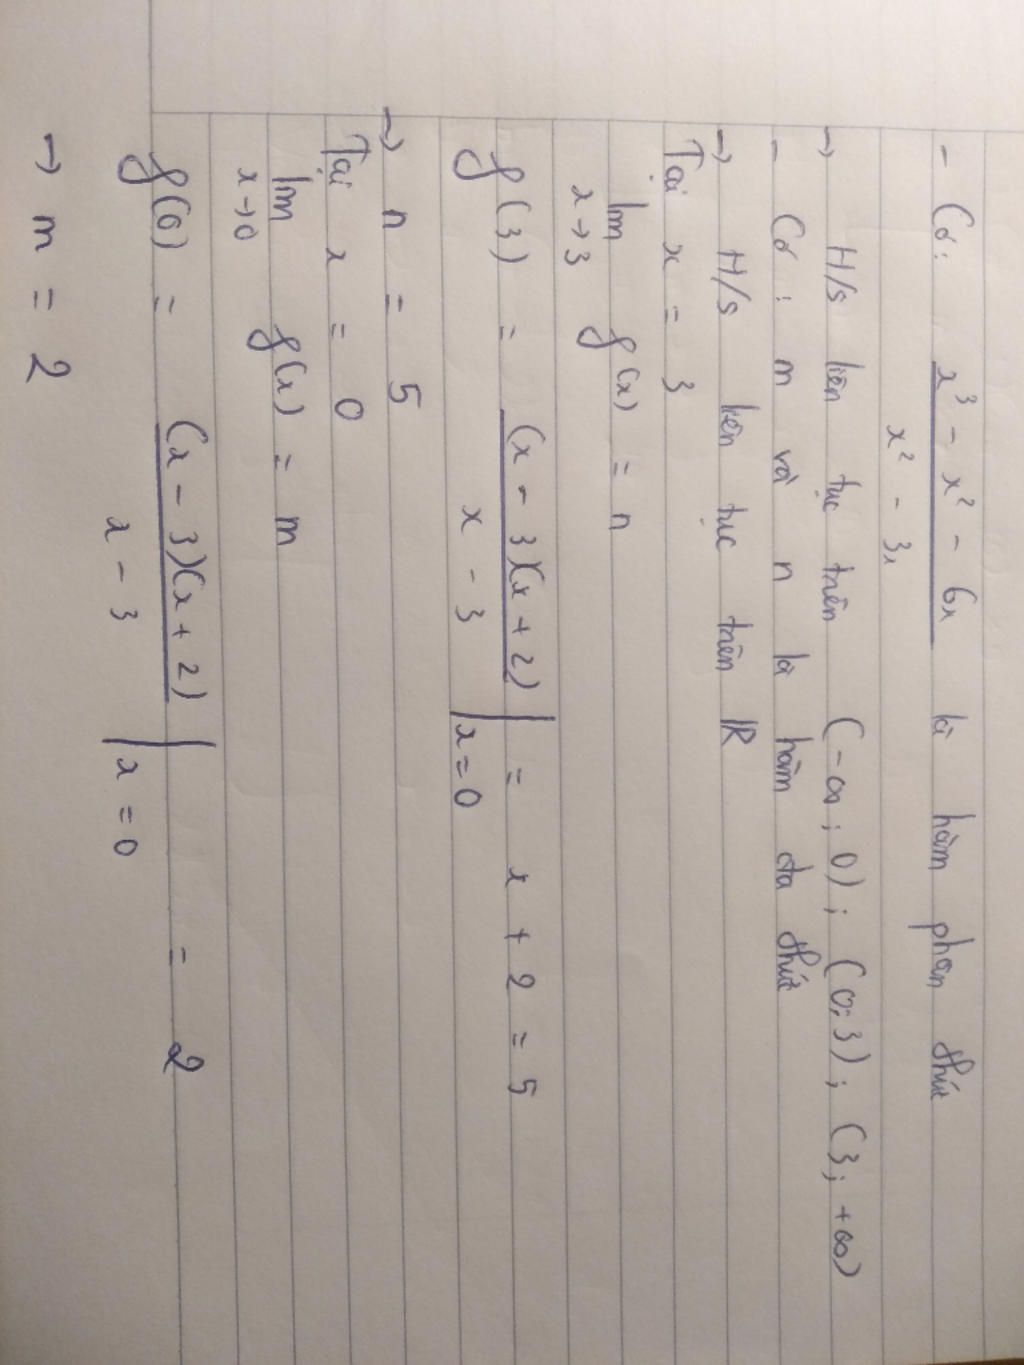 - Có: x³ - x² - 6x là hàm phan thức
x² - 3x
→ H/s liên tục trên (-∞; 0); (0; 3); (3; +∞)
- Có: m và n là hàm đa thức
→ H/s liên tục trên ℝ
Tại x = 3
lim f(x) = n
x → 3
f(3) = (x - 3)(x + 2) | = x + 2 = 5
x - 3 | x = 0
→ n = 5
Tại x = 0
lim f(x) = m
x → 0
f(0) = (x - 3)(x + 2) | = 2
x - 3 | x = 0
→ m = 2